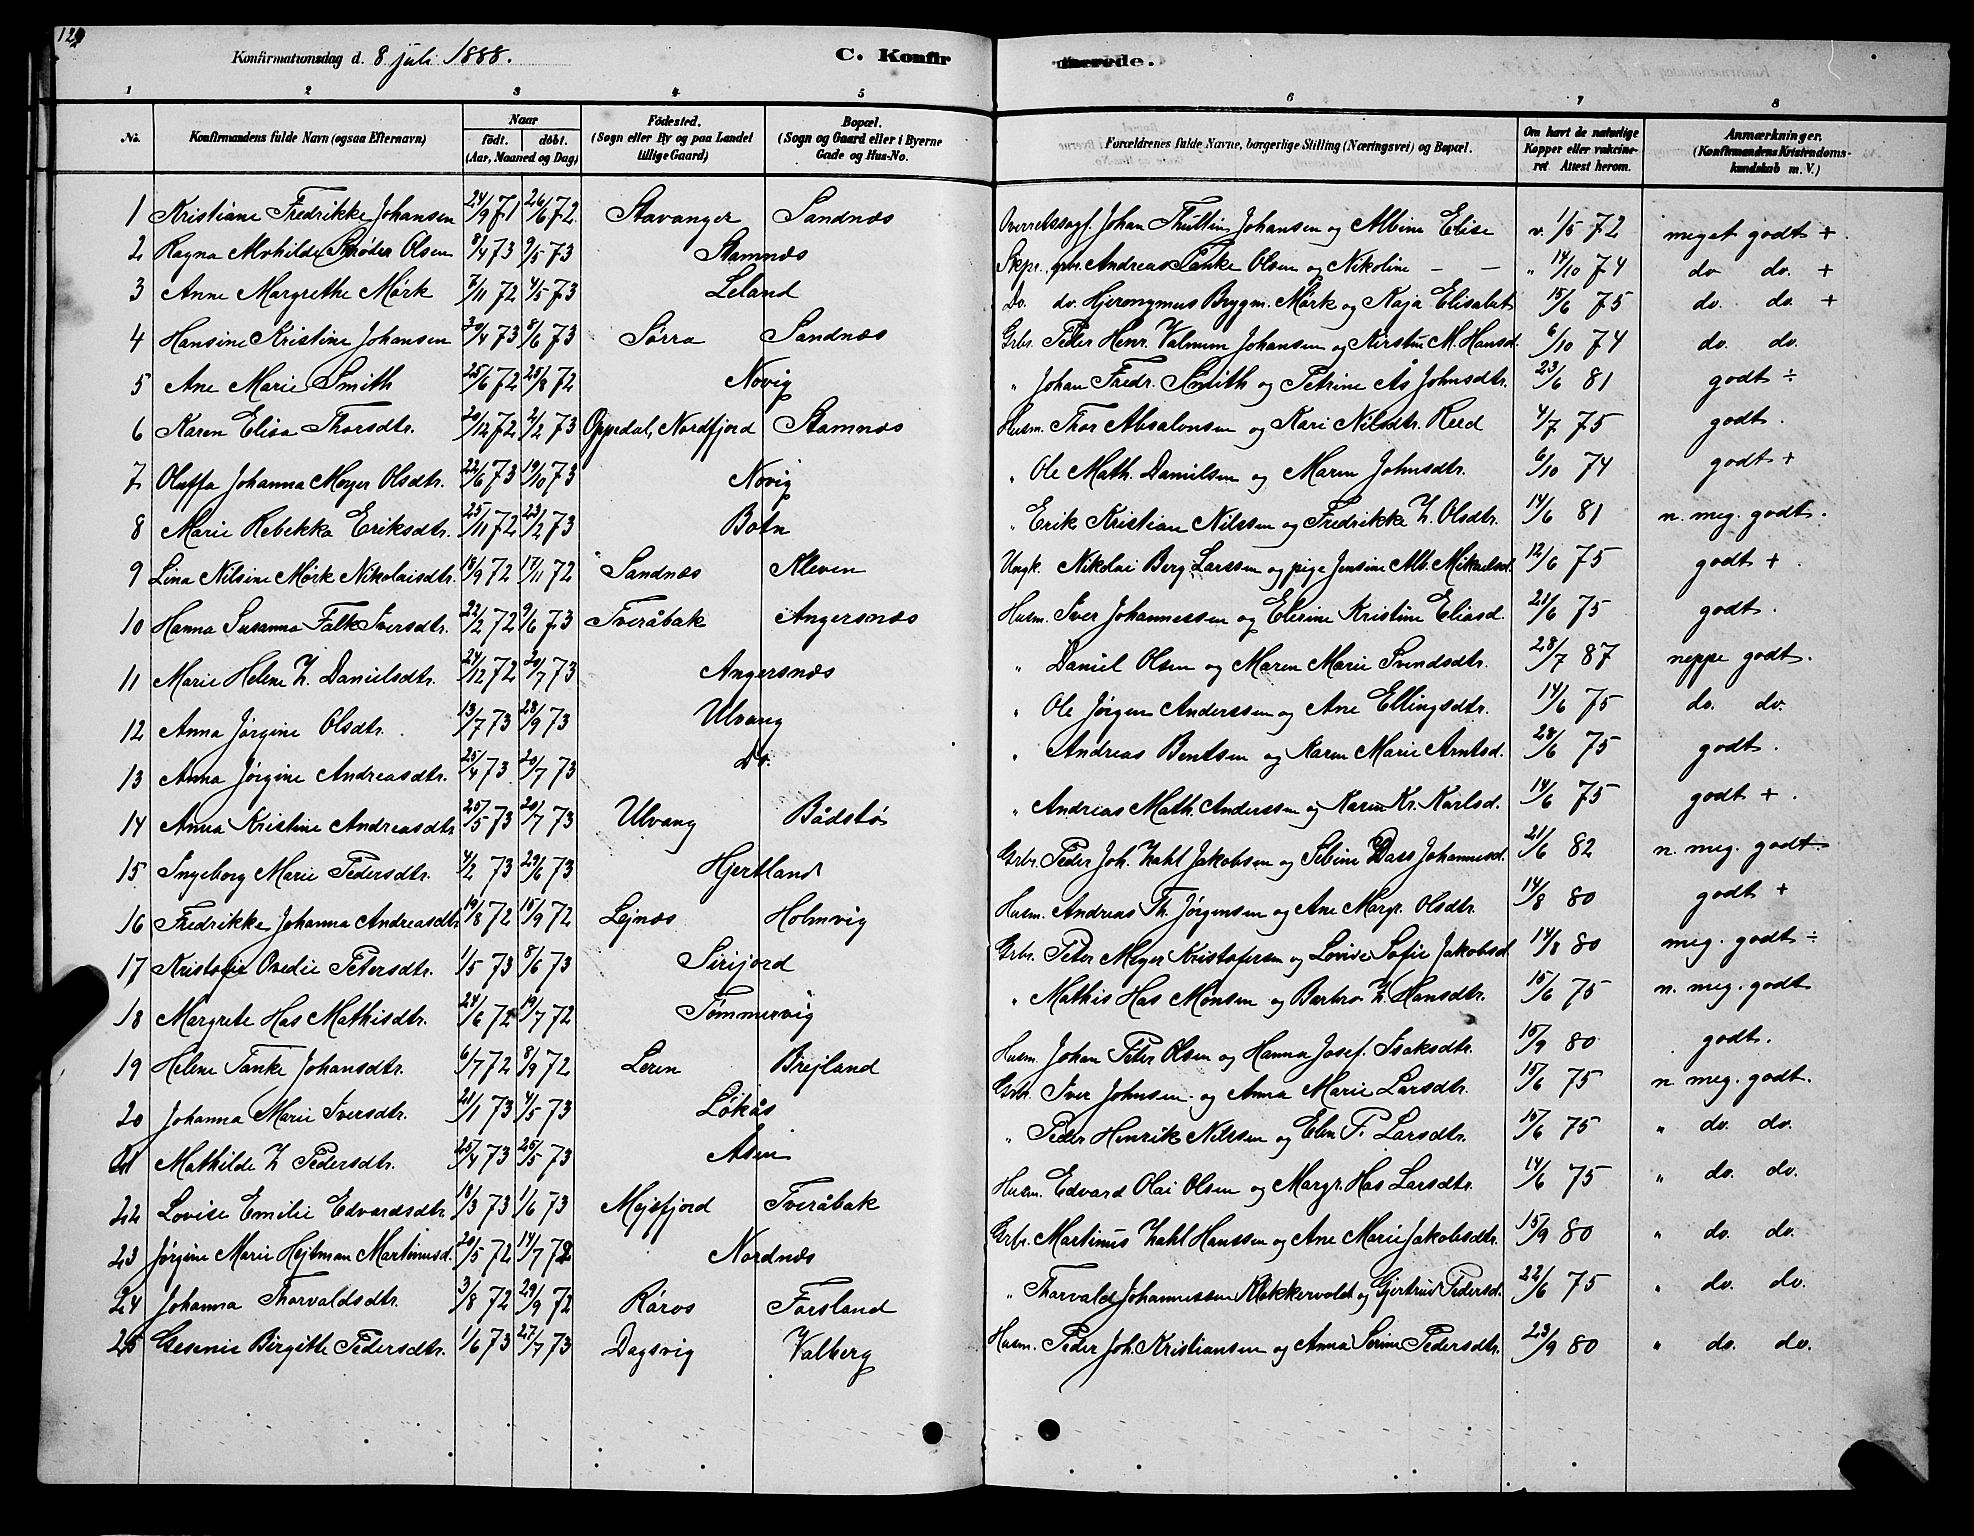 Konfirmationsdag d. 8 juli 1888.
C. Konfirmerede.
1 2 3 4 5 6 7 8
No. Konfirmandens fulde Navn (ogsaa Efternavn) Naar födt. döbt. (Aar, Maaned og Dag) Födested. (Sogn eller By og paa Landet tillige Gaard) Bopæl. (Sogn og Gaard eller i Byerne Gade og Hus-No. Forældrenes fulde Navne, borgerlige Stilling (Næringsvei) og Bopæl. Om havt de naturlige Kopper eller vakcineret Attest herom. Anmærkninger. (Konfirmandens Kristendomskundskab m. V.)
1 Kristiane Fredrikke Johansen 24/9 71 26/6 72. Stavanger Sandnæs Overretssagf. Johan Thuttin Johansen og Albine Elise v. 1/5 72 meget godt +.
2 Ragna Mathilde Schrøder Olsen 8/4 73 9/5 73 Stamnæs Skpr., grbr. Andreas Tanke Olsen og Nikoline — — " 14/10 74 do do. +
3 Anne Margrethe Mørk 7/11 72 4/5 73 Leland Do. do. Hjeronymus Brygm. Mørk og Kaja Elisabet 15/6 75 do. do. +
4 Hansine Kristine Johansen 30/4 73 8/6 73 Sørra Sandnæs Grbr. Peder Henr. Valnum Johansen og Kirstin M. Hansd. 6/10 74 do. do.
5 Ane Marie Smith 25/6 72 25/8 72 Novig " Johan Fredr. Smith og Petrine Ås Johnsdtr. 23/6 81 godt ÷
6 Karen Elisa Thorsdtr. 20/12 72 2/2 73 Oppedal, Nordfjord Stamnæs Husm. Thor Absalonsen og Kari Nilsdtr. Reed 4/7 75 godt.
7 Oluffa Johanna Meyer Olsdtr. 22/6 73 19/10 73 Novig " Ole Math. Danielsen og Maren Johnsdtr. 6/10 74 godt +
8 Marie Rebekka Eriksdtr. 25/11 72 23/2 73 Botn " Erik Kristian Nilssen og Fredrikke Z. Olsdtr. 14/6 81 n. meg. godt.
9 Lina Nilsine Mørk Nikolaisdtr. 18/9 72 17/11 72 Sandnæs Kleven Ungk. Nikolai Berg Larssen og pige Jensine Alb. Mikaelsd. 12/6 75 godt +.
10 Hanna Susanna Falk Iversdtr. 22/2 72 9/6 73 Tveråbak Angersnæs Husm. Iver Johannessen og Elerine Kristine Eliasd. 21/6 75 godt.
11 Marie Helene Z. Danielsdtr. 24/12 72 20/7 73 Angersnæs " Daniel Olsen og Maren Marie Svendsdtr. 28/7 87 neppe godt.
12 Anna Jørgine Olsdtr. 13/7 73 28/9 73 Ulvang " Ole Jørgen Anderssen og Ane Ellingsdtr. 14/6 75 do. do.
13 Anna Jørgine Andreasdtr. 25/4 73 20/7 73 Do. " Andreas Bentsen og Karen Marie Arntsd. 28/6 75 godt.
14 Anna Kristine Andreasdtr 25/5 73 20/7 73 Ulvang Bådstø " Andreas Math. Anderssen og Karen Kr. Karlsd. 14/6 75 godt +.
15 Ingeborg Marie Pedersdtr. 4/2 73 29/6 73 Hjertland Grbr. Peder Joh. Zahl Jakobsen og Sibine Dass Johannesd. 21/6 82 n. meg. godt.
16 Fredrikke Johanna Andreasdtr 19/8 72 15/9 72 Lejnæs Holmvig Husm. Andreas Th. Jørgensen og Ane Margr. Olsdtr. 14/8 80 godt +
17 Kristofie Ovedie Petersdtr. 1/5 73 8/6 73 Sirijord Grbr. Peter Meyer Kristofersen og Lovise Sofie Jakobsd. 14/8 80 meg. godt ÷
18 Margrete Has Mathisdtr. 24/6 72 19/7 72 Tømmervig " Mathis Has Monsen og Barbro Z. Hansdtr. 15/6 75 n. meg. godt
19 Helene Tanke Johansdtr. 6/7 72 8/9 72 Loren Brejland Husm. Johan Peter Olsen og Hanna Josef. Isaksdtr. 15/9 80 godt.
20 Johanna Marie Iversdtr. 21/1 73 4/5 73 Løkås Grbr. Iver Johnsen og Anna Marie Larsdtr. 15/6 75 n meg. godt.
21 Mathilde Z Pedersdtr. 25/4 73 25/5 73 Åsen " Peder Henrik Nilssen og Elen P. Larsdtr. 15/6 75 " do. do.
22 Lovise Emilie Edvardsdtr 18/3 73 1/6 73 Mejsfjord Tveråbak Husm. Edvard Olai Olsen og Margr. Has Larsdtr. 14/6 75 " do. do.
23 Jørgine Marie Hejtman Martinusd. 20/5 72 14/7 72 Nordnæs Grbr. Martinus Zahl Hanssen og Ane Marie Jakobsdtr. 15/9 80 " do. do.
24 Johanna Thorvaldsdtr. 3/8 72 29/9 72 Røros Forsland " Thorvald Johannessen Klokkervold og Gjertrud Pedersd. 22/6 75 " do. do.
25 Gesenie Birgitte Pedersdtr. 1/6 73 27/7 73 Dagsvig Valberg Husm. Peder Joh. Kristiansen og Anna Serine Pedersdtr. 23/9 80 " do. do.